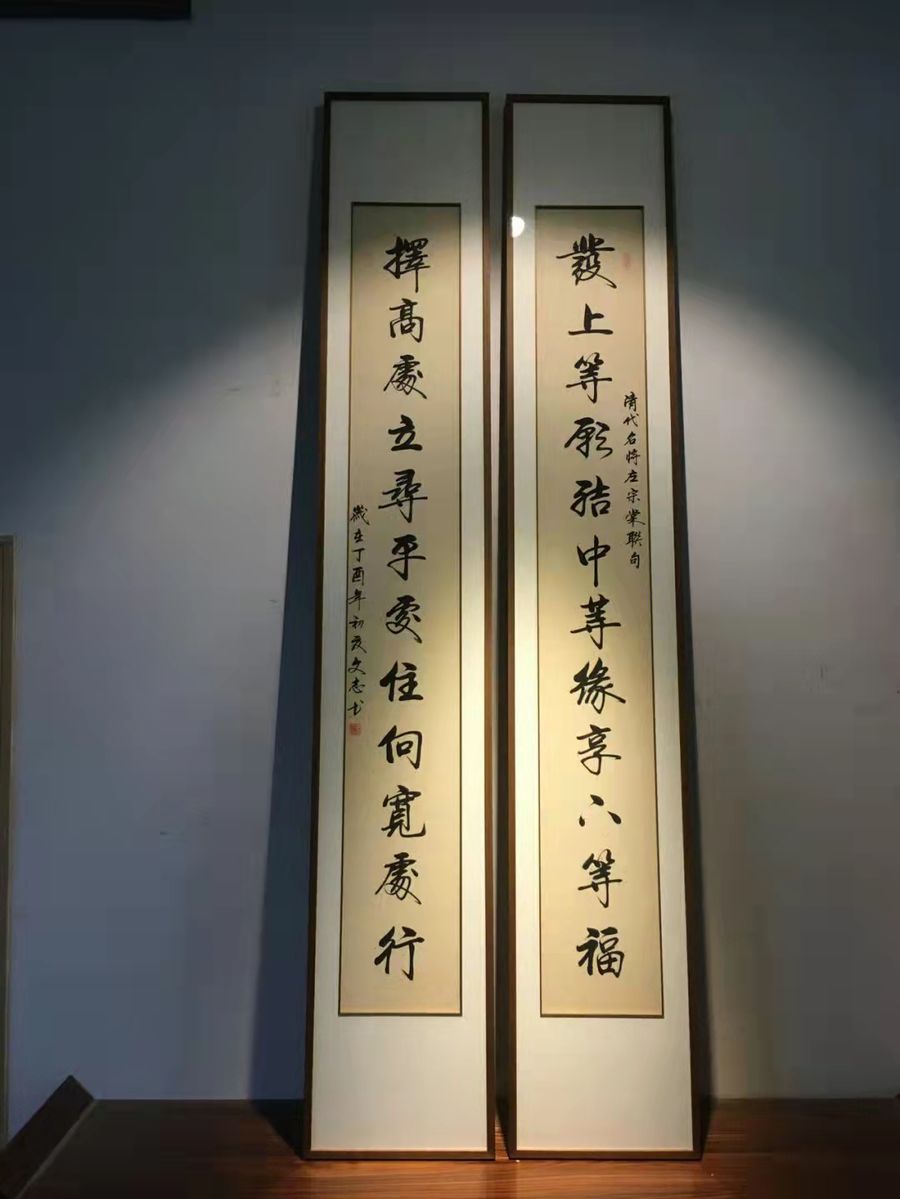 清代名將左宗棠聯句
發上等願結中等緣享下等福
擇高處立尋平處住向寬處行
歲在丁酉年初夏文志書